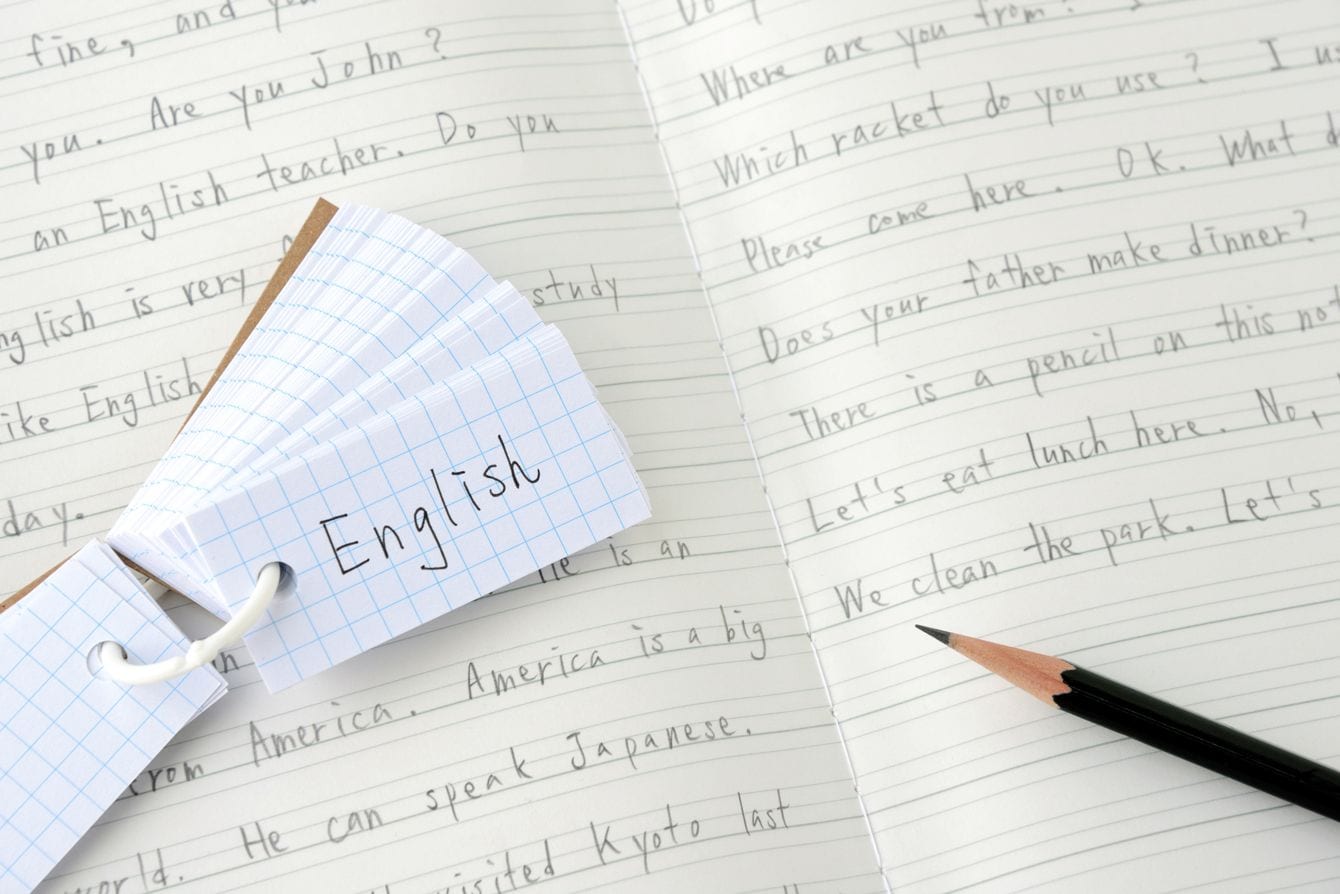 fine, and you
you. Are you John?
an English teacher. Do you
is very
study
English
day.
He is an
America is a big
from America.
He can speak Japanese.
world.
visited Kyoto last
English
Do
Where are you from?
Which racket do you use? I
Please come here. Ok. What
Does your father make dinner?
There is a pencil on this
Let's eat lunch here. No,
We clean the park. Let's